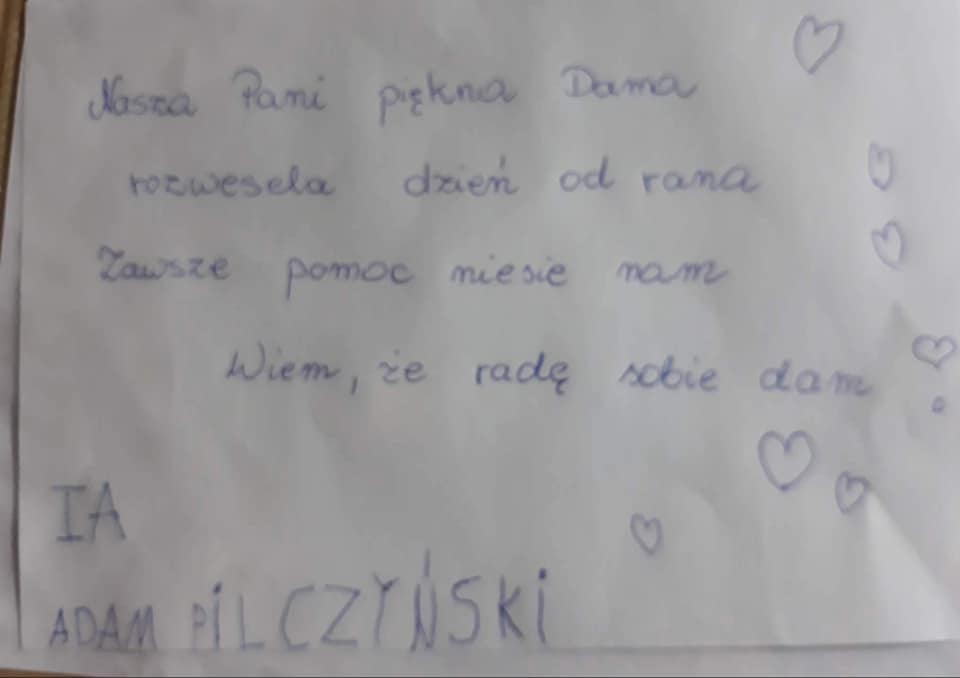 Nasza Pani piękna Dama
rozwesela dzień od rana
Zawsze pomoc niesie nam
Wiem, że radę sobie dam
IA
ADAM PILCZYŃSKI